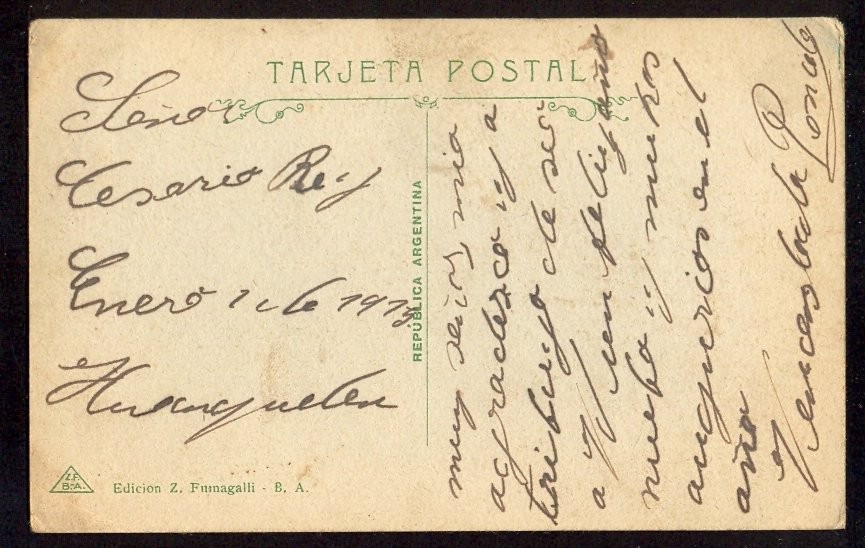 TARJETA POSTAL
REPÚBLICA ARGENTINA
Señor
Cesario Rey
Enero 1 de 191
Huanguelen
muy señor mia
agradesco y a
tribuyo de seo
a U un felis año
nuebo y muchos
augurios en el
año
Z.F.
B.A.
Edicion Z. Fumagalli - B. A.